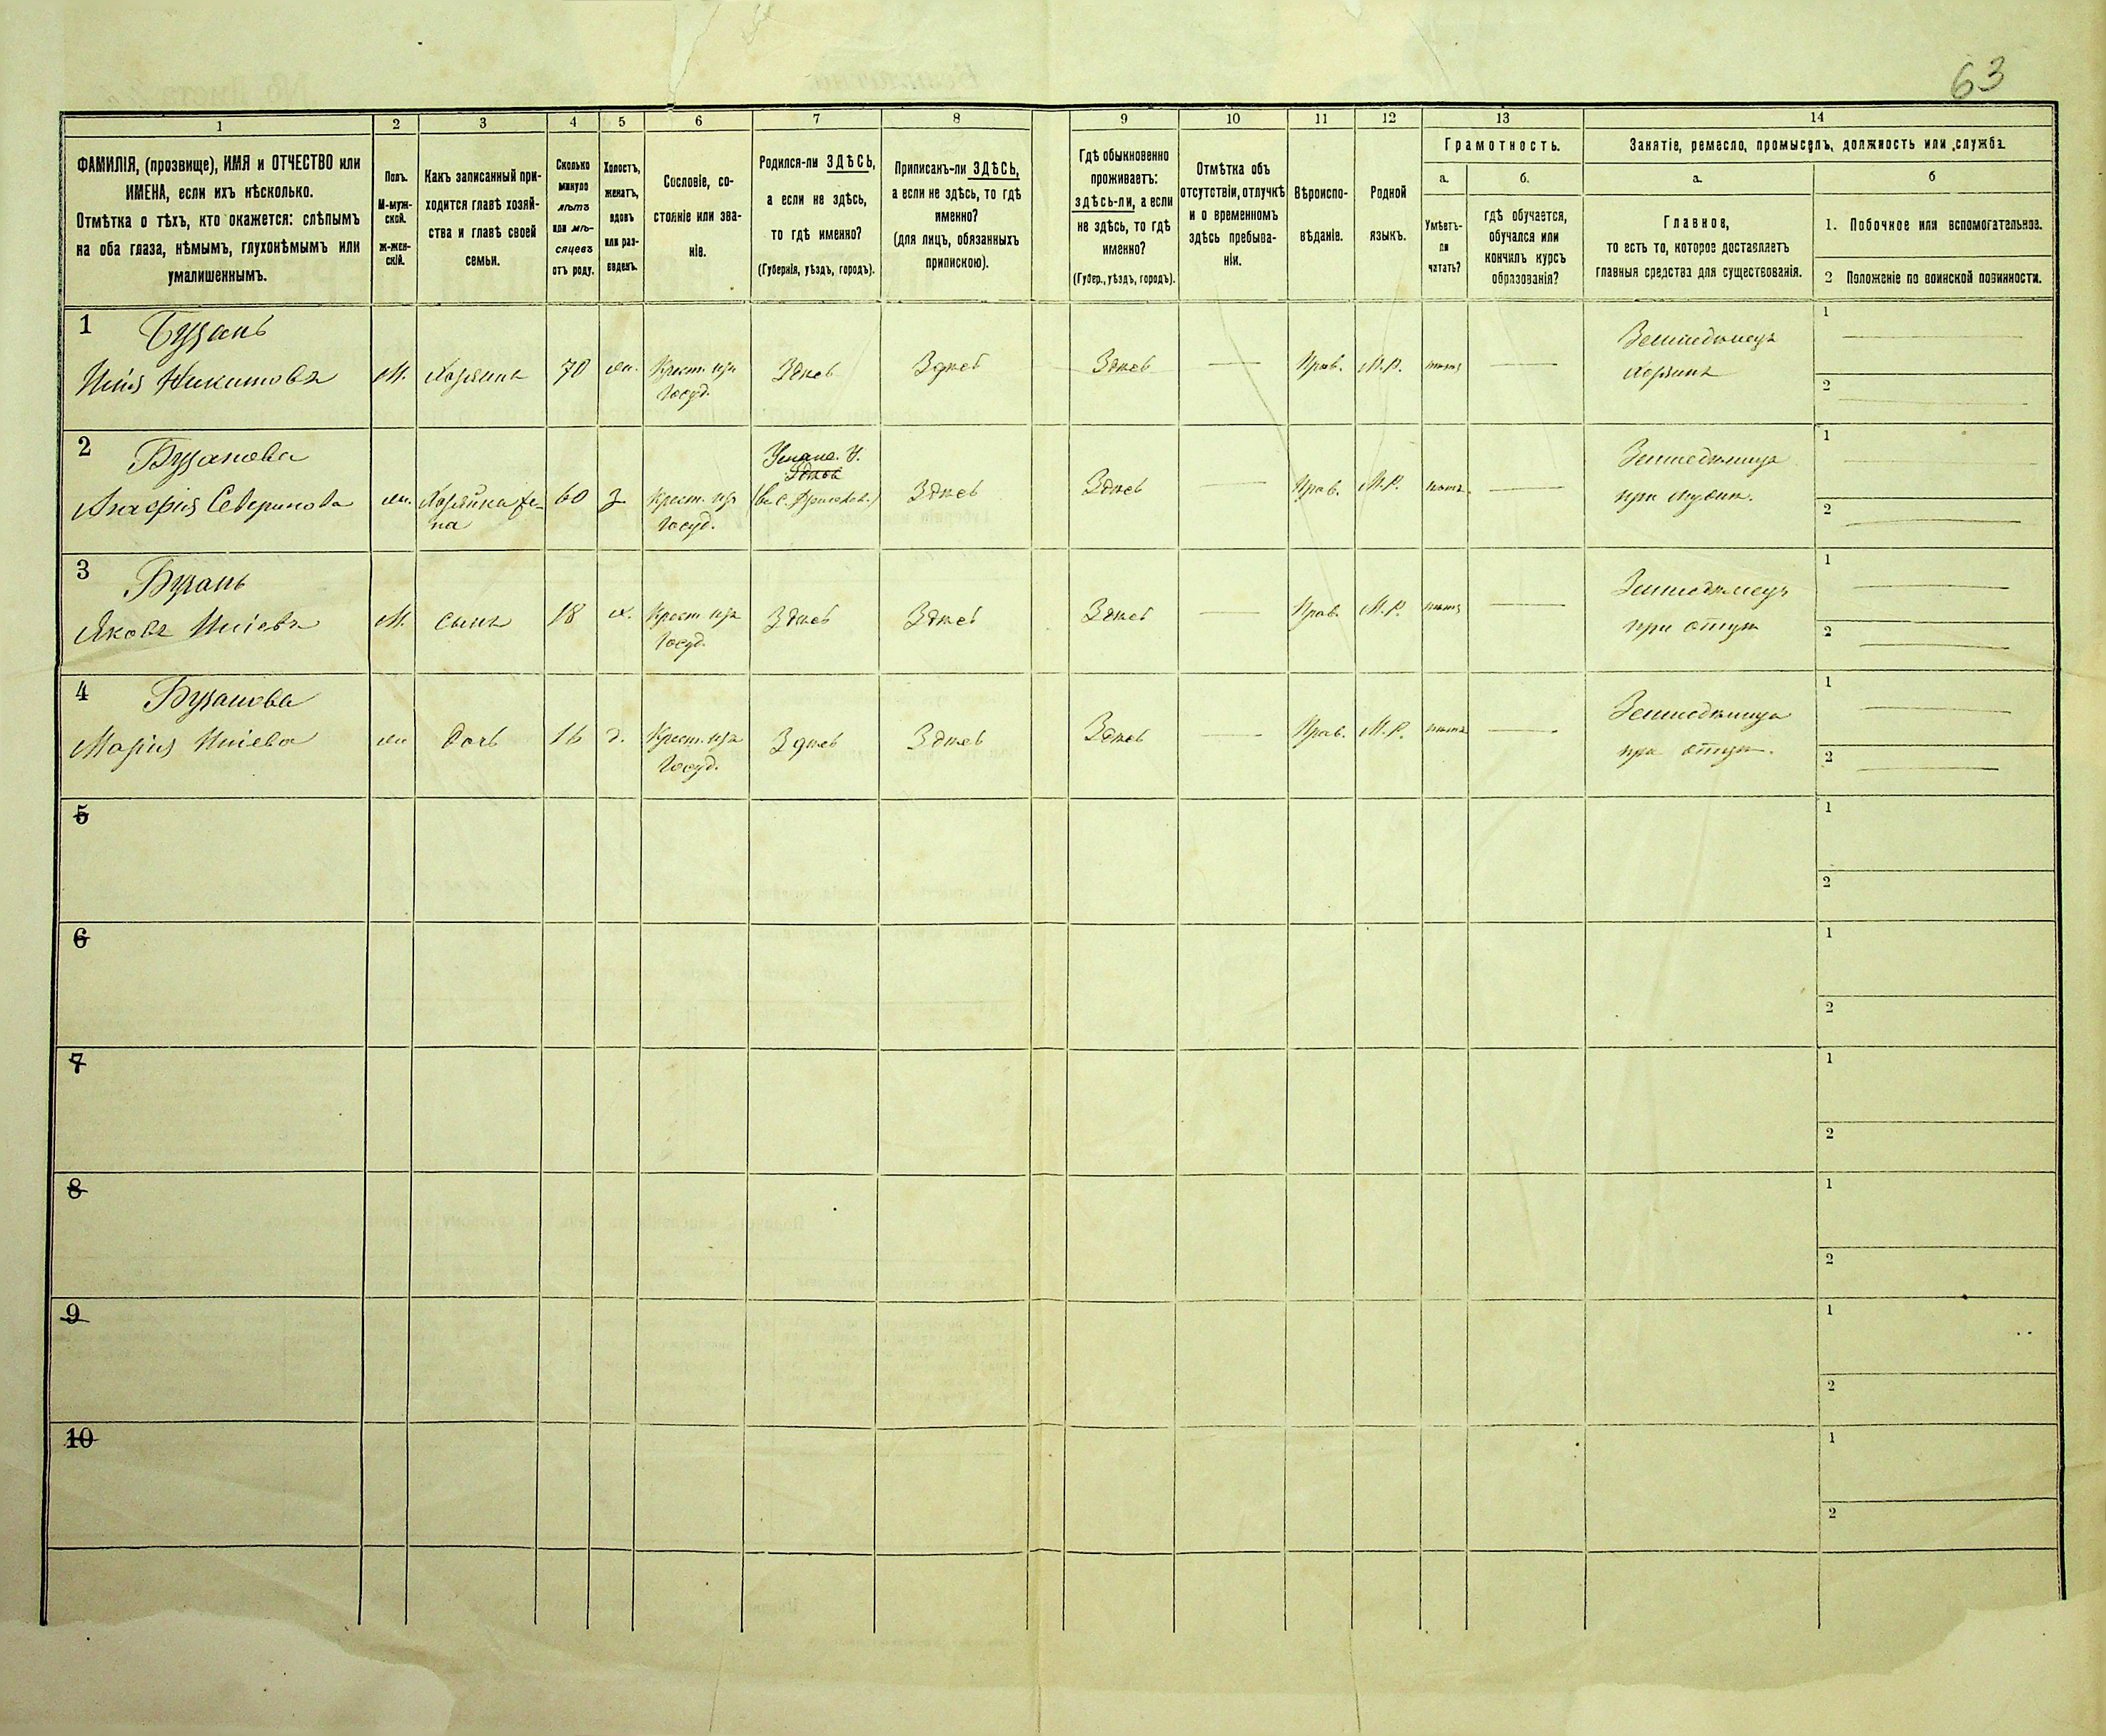 63
1
2
3
4
5
6
7
8
9
10
11
12
13
14
ФАМИЛІЯ, (прозвище), ИМЯ и ОТЧЕСТВО или
ИМЕНА, если ихъ нѣсколько.
Отмѣтка о тѣхъ, кто окажется: слѣпымъ
на оба глаза, нѣмымъ, глухонѣмымъ или
умалишеннымъ.
Полъ.
М-муж-
ской.
ж-жен-
скій.
Какъ записанный при-
ходится главѣ хозяй-
ства и главѣ своей
семьи.
Сколько
минуло
лѣтъ
или мѣ-
сяцевъ
отъ роду.
Холостъ,
женатъ,
вдовъ
или раз-
веденъ.
Сословіе, со-
стояніе или зва-
ніе.
Родился-ли ЗДѢСЬ,
а если не здѣсь,
то гдѣ именно?
(Губернія, уѣздъ, городъ).
Приписанъ-ли ЗДѢСЬ,
а если не здѣсь, то гдѣ
именно?
(для лицъ, обязанныхъ
припискою).
Гдѣ обыкновенно
проживаетъ:
здѣсь-ли, а если
не здѣсь, то гдѣ
именно?
(Губер., уѣздъ, городъ).
Отмѣтка объ
отсутствіи, отлучкѣ
и о временномъ
здѣсь пребыва-
ніи.
Вѣроиспо-
вѣданіе.
Родной
языкъ.
Грамотность.
а.
б.
Умѣетъ-
ли
читать?
гдѣ обучается,
обучался или
кончилъ курсъ
образованія?
Занятіе, ремесло, промыселъ, должность или служба.
а.
б
Главное,
то есть то, которое доставляетъ
главныя средства для существованія.
1. Побочное или вспомогательное.
2 Положеніе по воинской повинности.
1 Бузань
Никитовъ М. Хозяинъ 70 Крест. изъ Здѣсь Здѣсь Здѣсь Прав. М.Р. нѣтъ
Госуд.
Земледѣлецъ
Хозяинъ
1
2
2 Бузанова
Севериновa жн. Хозяйка же- 60 З. Крест. изъ Здѣсь Здѣсь Прав. М.Р. нѣтъ
на Госуд.
Земледѣлица
при
1
2
3 Бузань
Яковъ М. сынъ 18 х. Крест. изъ Здѣсь Здѣсь Здѣсь Прав. М.Р. нѣтъ
Госуд.
Земледѣлецъ
при отцѣ
1
2
4 Бузанова
Марія жн дочь 16 д. Крест. изъ Здѣсь Здѣсь Здѣсь Прав. М.Р. нѣтъ
Госуд.
Земледѣлица
при отцѣ.
1
2
5
1
2
6
1
2
7
1
2
8
1
2
9
1
2
10
1
2